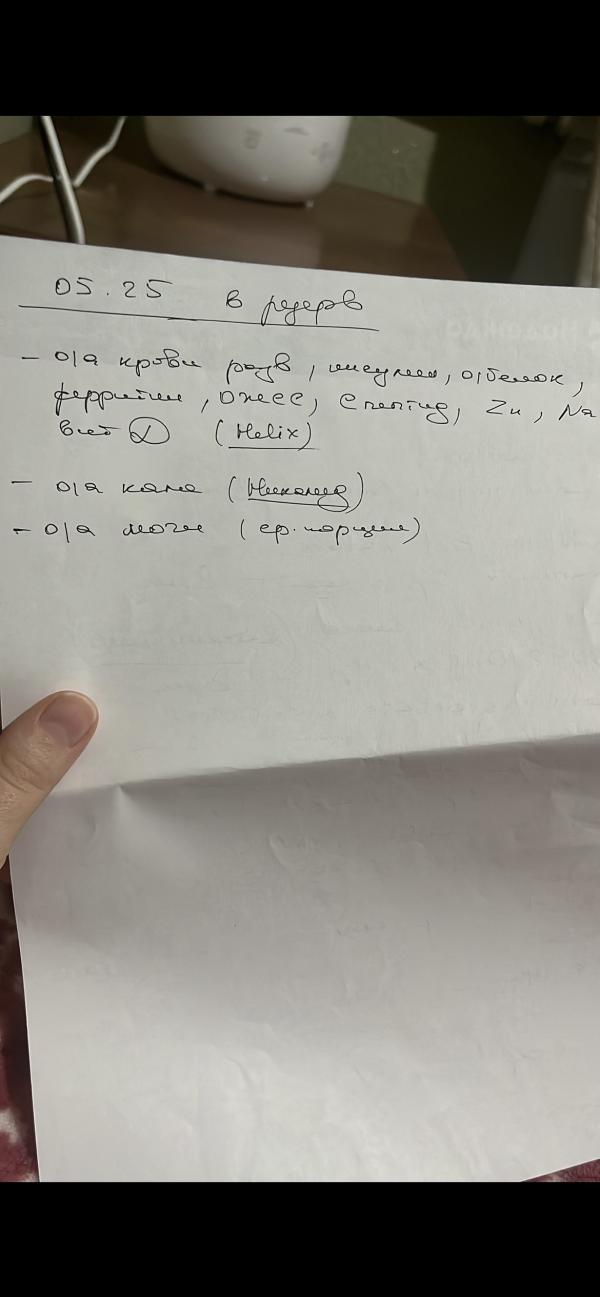 05.25 в резерв
- о/а крови разв, инсулин, о/белок,
ферритин, ОЖСС, Zn, Na
вит D (Helix)
- о/а кала (Никонид)
- о/а мочи (ср. порции)